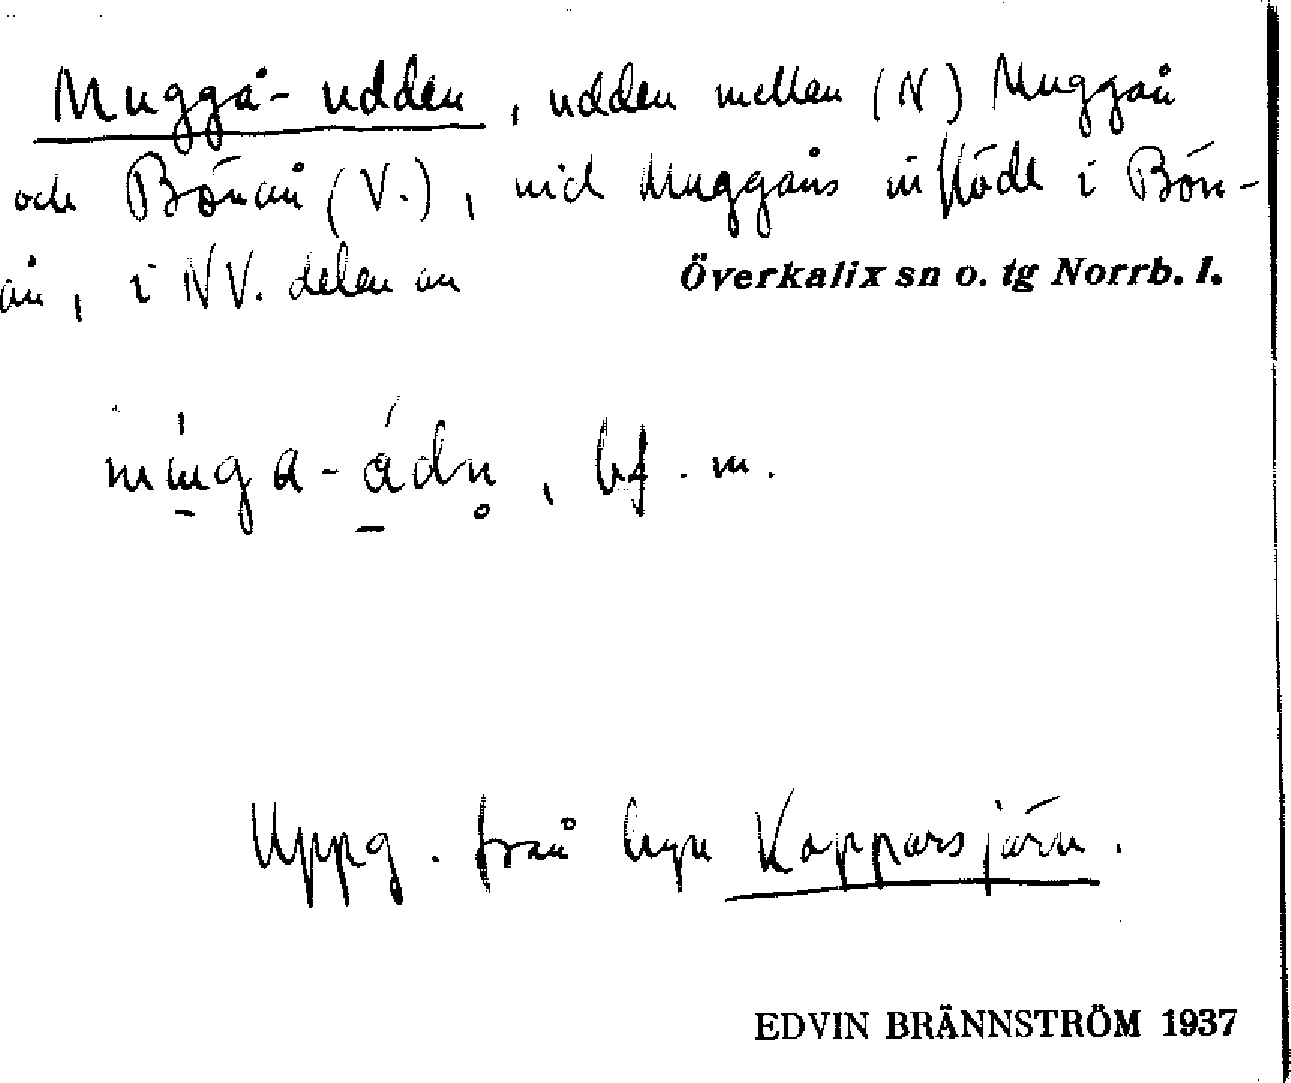 Muggå-udden, udden mellan (N) Muggån
och Bönån (V.), vid Muggåns inflöde i Bön-
ån, i NV. delen av Överkalix sn o. tg Norrb. l.
bf. m.
Uppg. från byn Kopparsjärn.
EDVIN BRÄNNSTRÖM 1937